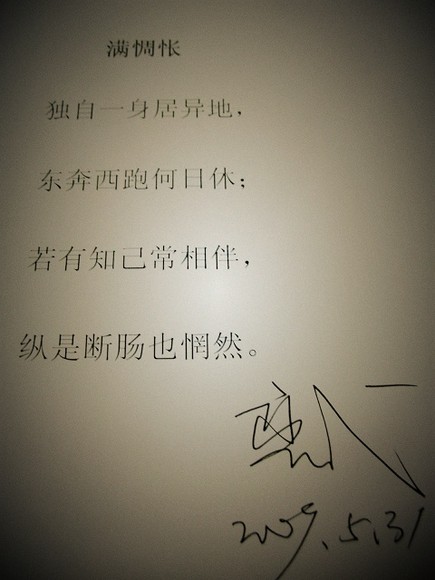 满惆怅
独自一身居异地，
东奔西跑何日休；
若有知己常相伴，
纵是断肠也惘然。
2009.5.31